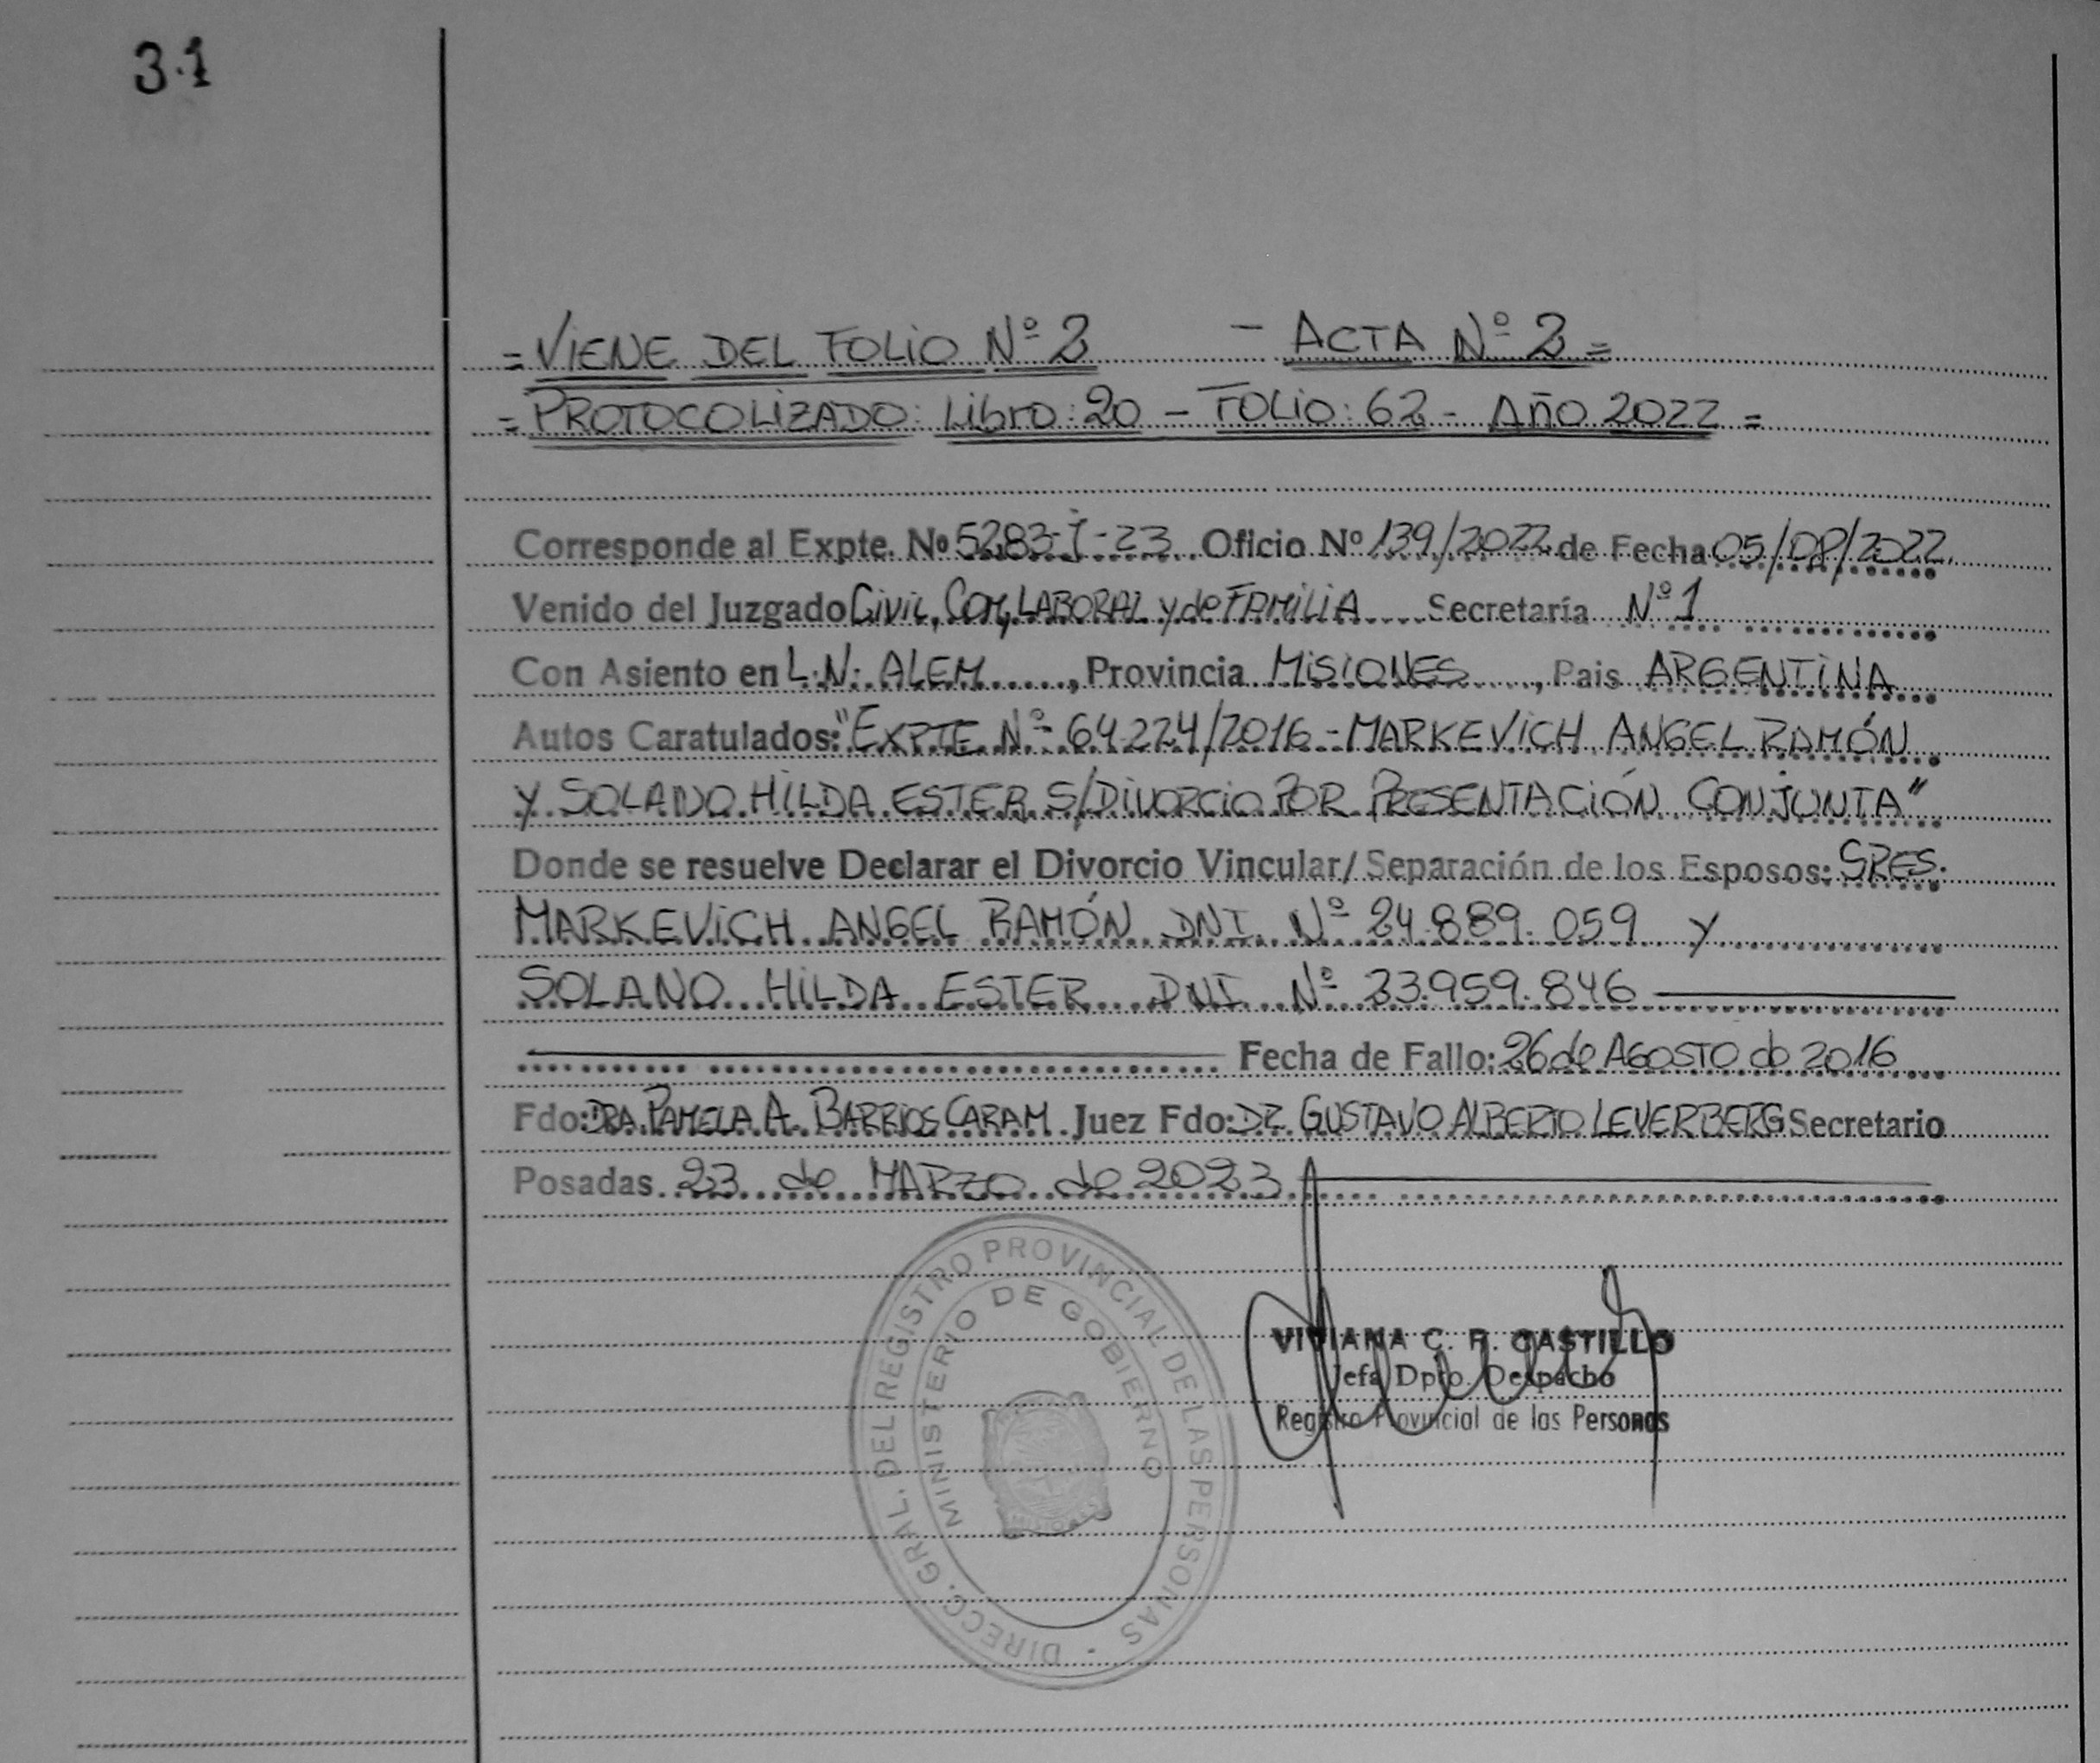 31
= VIENE DEL FOLIO Nº 2 - ACTA Nº 2 =
= PROTOCOLIZADO: Libro: 20 - FOLIO: 62 - AÑO 2022 =
Corresponde al Expte. Nº 5283-I-23 Oficio Nº 139/2022 de Fecha 05/08/2022.
Venido del Juzgado Civil, Com, LABORAL y de FAMILIA Secretaría Nº 1
Con Asiento en L.N. ALEM, Provincia MISIONES, Pais ARGENTINA
Autos Caratulados: "EXPTE Nº 64224/2016 - MARKEVICH ANGEL RAMÓN
Y SOLANO HILDA ESTER S/DIVORCIO POR PRESENTACIÓN CONJUNTA"
Donde se resuelve Declarar el Divorcio Vincular/ Separación de los Esposos: SRES.
MARKEVICH ANGEL RAMÓN DNI Nº 24.889.059 y
SOLANO HILDA ESTER DNI Nº 23.959.846
Fecha de Fallo: 26 de AGOSTO de 2016
Fdo: DRA. PAMELA A. BARRIOS CARAM. Juez Fdo: DR. GUSTAVO ALBERTO LEVERBERG Secretario
Posadas 23 de MARZO de 2023
DIRECC. GRAL. DEL REGISTRO PROVINCIAL DE LAS PERSONAS
MINISTERIO DE GOBIERNO
VIVIANA C. R. CASTILLO
Jefa Dpto. Despacho
Registro Provincial de las Personas